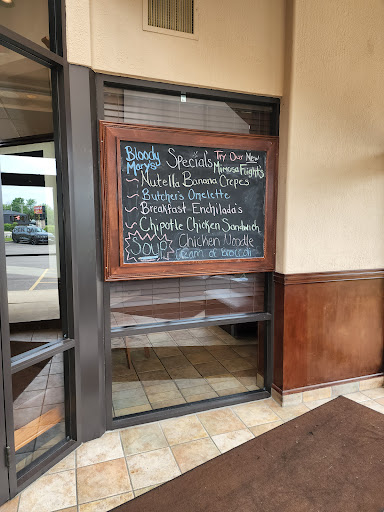 Bloody Mary's Specials Try Our New Mimosa Flight's
~ Nutella Banana Crepes
~ Butcher's Omelette
~ Breakfast Enchilada's
~ Chipotle Chicken Sandwich
SOUP Chicken Noodle
Cream of Broccoli